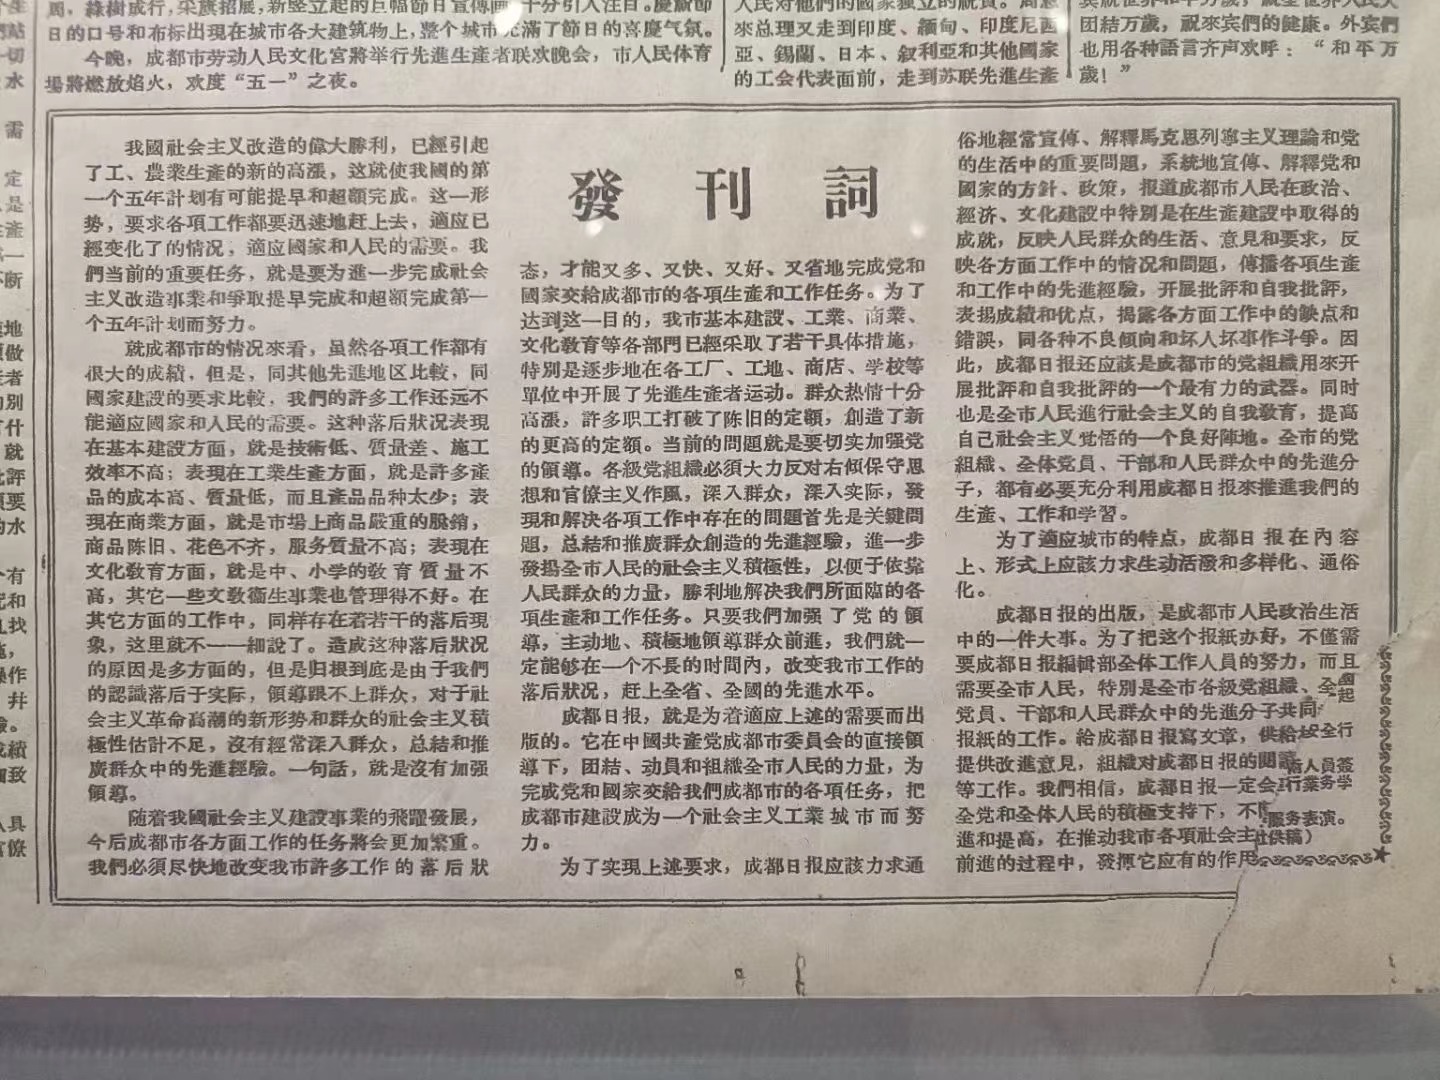 日的口号和布标出現在城市各大建筑物上，整个城市充滿了節日的喜慶气氛。
今晚，成都市劳动人民文化宮將举行先進生產者联欢晚会，市人民体育
場將燃放焰火，欢度“五一”之夜。
來总理又走到印度、緬甸、印度尼西
亞、錫蘭、日本、叙利亞和其他國家
的工会代表面前，走到苏联先進生產
团結万歲，祝來宾們的健康。外宾們
也用各种語言齐声欢呼：“和平万
歲！”
發刊詞
我國社会主义改造的偉大勝利，已經引起
了工、農業生產的新的高漲，这就使我國的第
一个五年計划有可能提早和超額完成。这一形
势，要求各項工作都要迅速地赶上去，適应已
經变化了的情况，適应國家和人民的需要。我
們当前的重要任务，就是要为進一步完成社会
主义改造事業和爭取提早完成和超額完成第一
个五年計划而努力。
就成都市的情况來看，虽然各項工作都有
很大的成績，但是，同其他先進地区比較，同
國家建設的要求比較，我們的許多工作还远不
能適应國家和人民的需要。这种落后狀况表現
在基本建設方面，就是技術低、質量差、施工
效率不高；表現在工業生產方面，就是許多產
品的成本高、質量低，而且產品品种太少；表
現在商業方面，就是市場上商品嚴重的脫銷，
商品陈旧、花色不齐，服务質量不高；表現在
文化敎育方面，就是中、小学的敎育質量不
高，其它一些文敎衞生事業也管理得不好。在
其它方面的工作中，同样存在着若干的落后現
象，这里就不一一細說了。造成这种落后狀况
的原因是多方面的，但是归根到底是由于我們
的認識落后于实际，領導跟不上群众，对于社
会主义革命高潮的新形势和群众的社会主义積
極性估計不足，沒有經常深入群众，总結和推
廣群众中的先進經驗。一句話，就是沒有加强
領導。
随着我國社会主义建設事業的飛躍發展，
今后成都市各方面工作的任务將会更加繁重。
我們必須尽快地改变我市許多工作的落后狀
态，才能又多、又快、又好、又省地完成党和
國家交給成都市的各項生產和工作任务。为了
达到这一目的，我市基本建設、工業、商業、
文化敎育等各部門已經采取了若干具体措施，
特別是逐步地在各工厂、工地、商店、学校等
單位中开展了先進生產者运动。群众热情十分
高漲，許多职工打破了陈旧的定額，創造了新
的更高的定額。当前的問題就是要切实加强党
的領導。各級党組織必須大力反对右傾保守思
想和官僚主义作風，深入群众，深入实际，發
現和解决各項工作中存在的問題首先是关鍵問
題，总結和推廣群众創造的先進經驗，進一步
發揚全市人民的社会主义積極性，以便于依靠
人民群众的力量，勝利地解决我們所面臨的各
項生產和工作任务。只要我們加强了党的領
導，主动地、積極地領導群众前進，我們就一
定能够在一个不長的时間內，改变我市工作的
落后狀况，赶上全省、全國的先進水平。
成都日报，就是为着適应上述的需要而出
版的。它在中國共產党成都市委員会的直接領
導下，团結、动員和組織全市人民的力量，为
完成党和國家交給我們成都市的各項任务，把
成都市建設成为一个社会主义工業城市而努
力。
为了实現上述要求，成都日报应該力求通
俗地經常宣傳、解釋馬克思列寧主义理論和党
的生活中的重要問題，系統地宣傳、解釋党和
國家的方針、政策，报道成都市人民在政治、
經济、文化建設中特別是在生產建設中取得的
成就，反映人民群众的生活、意見和要求，反
映各方面工作中的情况和問題，傳播各項生產
和工作中的先進經驗，开展批評和自我批評，
表揚成績和优点，揭露各方面工作中的缺点和
錯誤，同各种不良傾向和坏人坏事作斗爭。因
此，成都日报还应該是成都市的党組織用來开
展批評和自我批評的一个最有力的武器。同时
也是全市人民進行社会主义的自我敎育，提高
自己社会主义觉悟的一个良好陣地。全市的党
組織、全体党員、干部和人民群众中的先進分
子，都有必要充分利用成都日报來推進我們的
生產、工作和学習。
为了適应城市的特点，成都日报在內容
上、形式上应該力求生动活潑和多样化、通俗
化。
成都日报的出版，是成都市人民政治生活
中的一件大事。为了把这个报紙办好，不僅需
要成都日报編輯部全体工作人員的努力，而且
需要全市人民，特別是全市各級党組織、全
党員、干部和人民群众中的先進分子共同
报紙的工作。給成都日报寫文章，供給
提供改進意見，組織对成都日报的閱讀
等工作。我們相信，成都日报一定会
全党和全体人民的積極支持下，不
進和提高，在推动我市各項社会主
前進的过程中，發揮它应有的作用
起
全行
人員簽
行業务学
服务表演。
供稿）